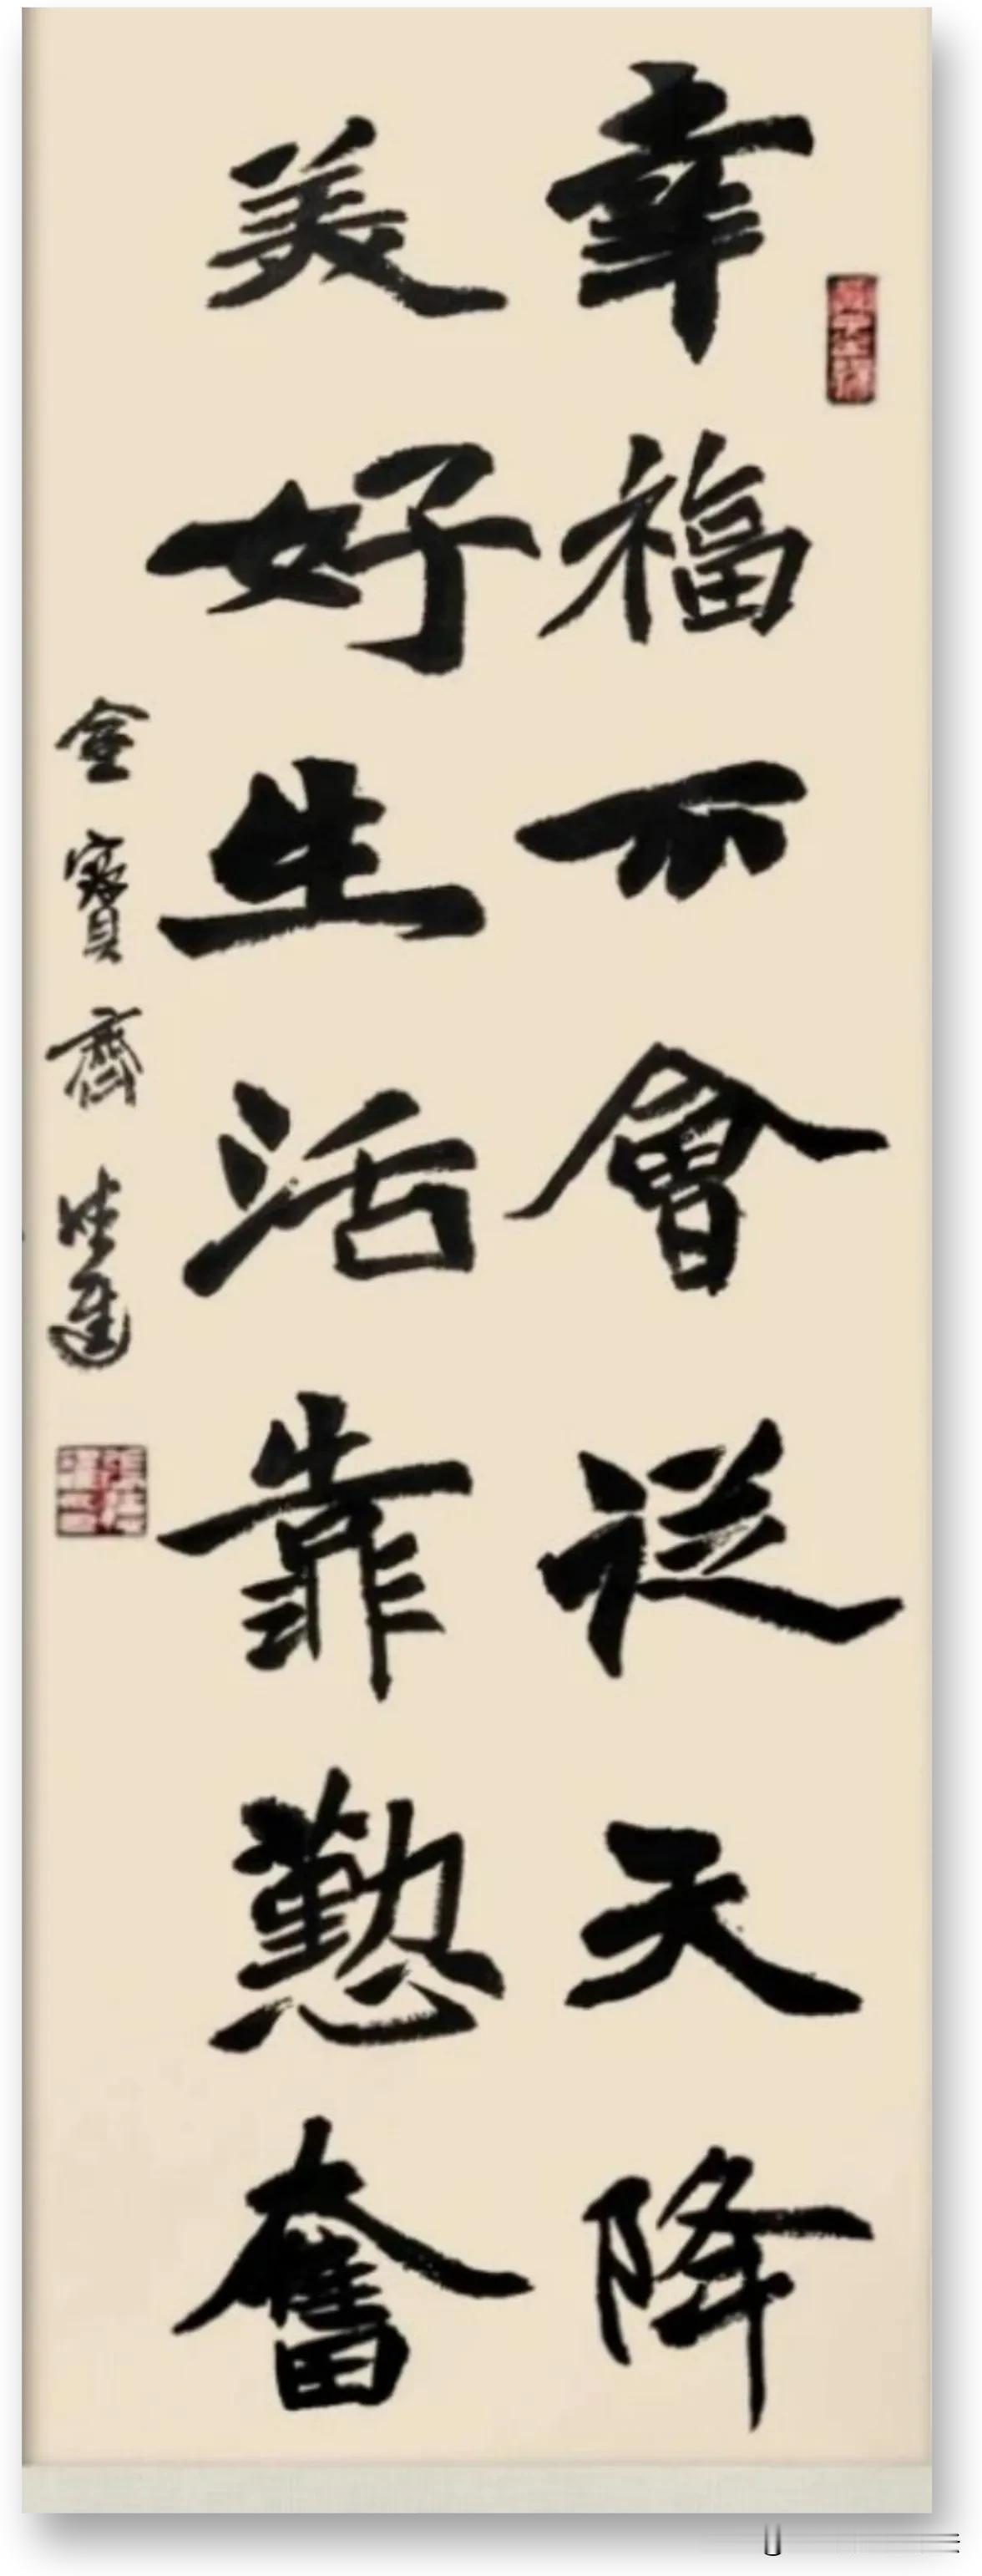 幸福不會從天降
美好生活靠懃奮
金寶齋 佳進